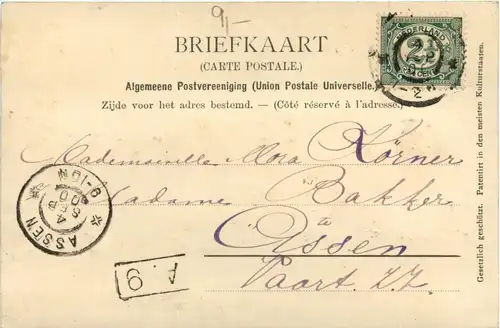 9,-
BRIEFKAART
(CARTE POSTALE.)
Algemeene Postvereeniging (Union Postale Universelle.)
Zijde voor het adres bestemd. — (Côté réservé à l'adresse.)
NEDERLAND
2½
CENT
Mademoiselle Mora Körner
Madame Bakker
te
Assen
Vaart. Z.Z.
ASSEN
9-10N
4
SEP
A. 9
Gesetzlich geschützt. Patentirt in den meisten Kulturstaaten.